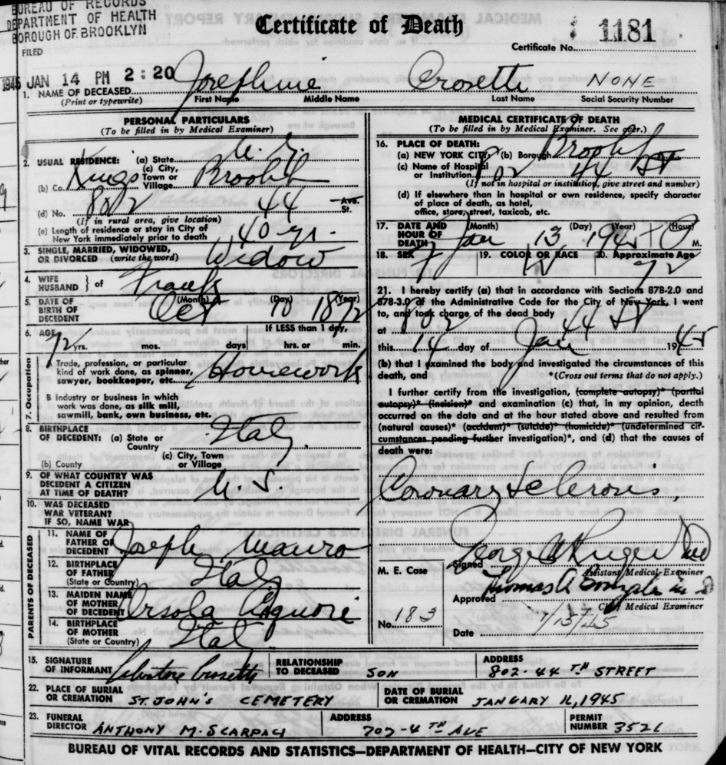 BUREAU OF RECORDS
DEPARTMENT OF HEALTH
BOROUGH OF BROOKLYN
FILED
1945 JAN 14 PM 2:20
Certificate of Death
Certificate No. 1181
1. NAME OF DECEASED Josephine Crosetti NONE
(Print or typewrite) First Name Middle Name Last Name Social Security Number
PERSONAL PARTICULARS
(To be filled in by Medical Examiner)
2. USUAL RESIDENCE: (a) State N.Y.
(b) Co. Kings (c) City, Town or Village Brooklyn
(d) No. 802 44 Ave. St.
(If in rural area, give location)
(e) Length of residence or stay in City of New York immediately prior to death 40 yr.
3. SINGLE, MARRIED, WIDOWED, OR DIVORCED (write the word) Widow
4. WIFE HUSBAND } of Frank
5. DATE OF BIRTH OF DECEDENT (Month) Oct (Day) 10 (Year) 1872
6. AGE 72 yrs. mos. days If LESS than 1 day, hrs. or min.
7. Occupation
A Trade, profession, or particular kind of work done, as spinner, sawyer, bookkeeper, etc. Housework
B Industry or business in which work was done, as silk mill, sawmill, bank, own business, etc.
8. BIRTHPLACE OF DECEDENT: (a) State or Country Italy
(b) County (c) City, Town or Village
9. OF WHAT COUNTRY WAS DECEDENT A CITIZEN AT TIME OF DEATH? U.S.
10. WAS DECEASED WAR VETERAN? IF SO, NAME WAR
PARENTS OF DECEASED
11. NAME OF FATHER OF DECEDENT Joseph Mauro
12. BIRTHPLACE OF FATHER (State or Country) Italy
13. MAIDEN NAME OF MOTHER OF DECEDENT Ursola
14. BIRTHPLACE OF MOTHER (State or Country) Italy
MEDICAL CERTIFICATE OF DEATH
(To be filled in by Medical Examiner. See over.)
16. PLACE OF DEATH:
(a) NEW YORK CITY: (b) Borough Brooklyn
(c) Name of Hospital or Institution 802 44 St
(If not in hospital or institution, give street and number)
(d) If elsewhere than in hospital or own residence, specify character of place of death, as hotel, office, store, street, taxicab, etc.
17. DATE AND HOUR OF DEATH (Month) Jan (Day) 13 (Year) 1945 (Hour) M.
18. SEX F 19. COLOR OR RACE W 20. Approximate Age 72
21. I hereby certify (a) that in accordance with Sections 878-2.0 and
878-3.0 of the Administrative Code for the City of New York, I went
to, and took charge of the dead body
at 802 44 St
this 14 day of Jan 1945
(b) that I examined the body and investigated the circumstances of this
death, and *(Cross out terms that do not apply.)
I further certify from the investigation, (complete autopsy)* (partial
autopsy)* (incision)* and examination (c) that, in my opinion, death
occurred on the date and at the hour stated above and resulted from
(natural causes)* (accident)* (suicide)* (homicide)* (undetermined cir-
cumstances pending further investigation)*, and (d) that the causes of
death were:
Coronary Sclerosis.
M. E. Case No. 183
Signed George W Ruger MD
Assistant Medical Examiner
Approved Thomas A. Gonzales M D
Chief Medical Examiner
Date 1/15/45
15. SIGNATURE OF INFORMANT Salvatore Crosetti RELATIONSHIP TO DECEASED SON ADDRESS 802-44TH STREET
22. PLACE OF BURIAL OR CREMATION ST. JOHN'S CEMETERY DATE OF BURIAL OR CREMATION JANUARY 16, 1945
23. FUNERAL DIRECTOR ANTHONY M. SCARPACI ADDRESS 702-4TH AVE PERMIT NUMBER 3526
BUREAU OF VITAL RECORDS AND STATISTICS—DEPARTMENT OF HEALTH—CITY OF NEW YORK